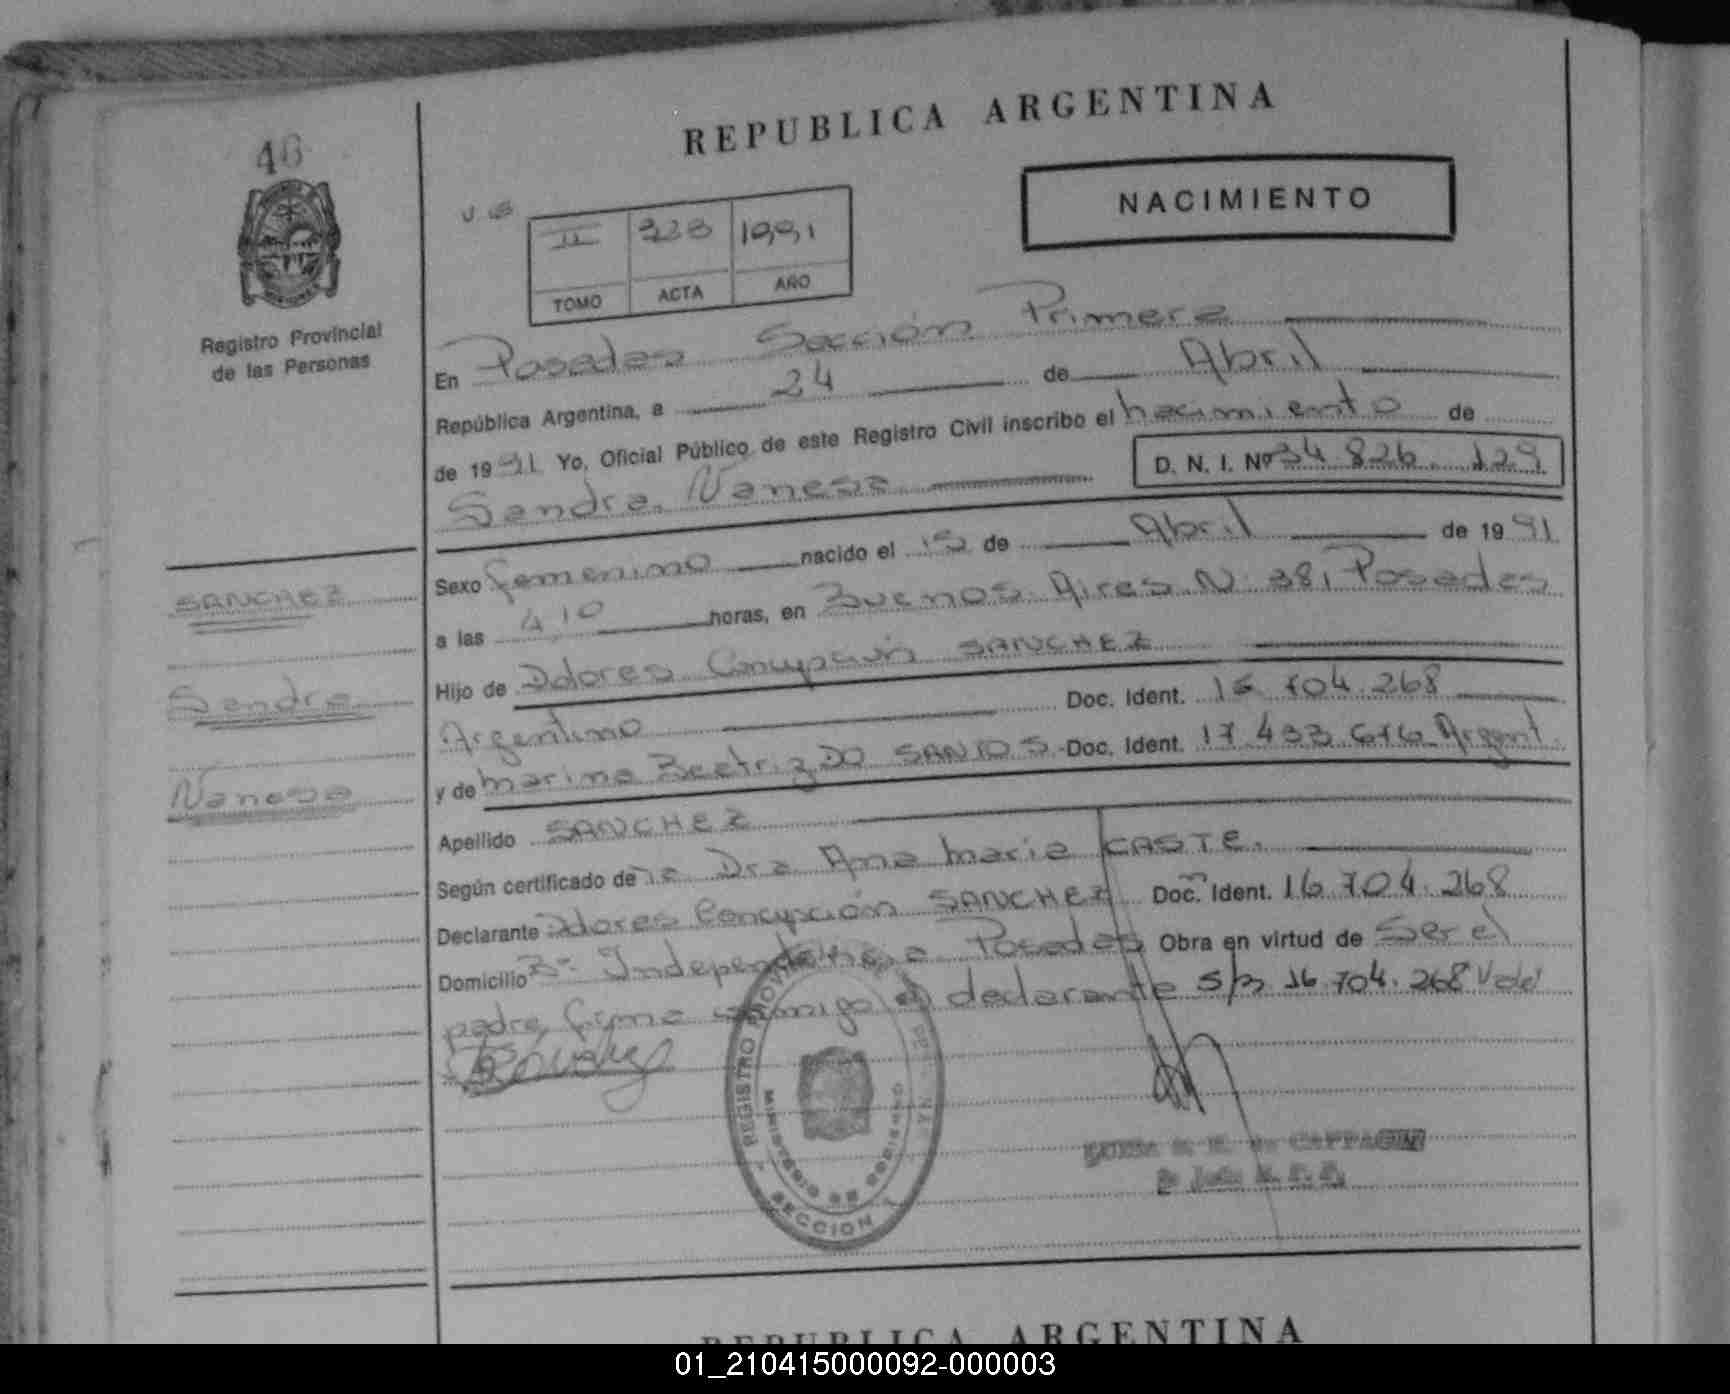 REPUBLICA ARGENTINA
NACIMIENTO
II 323 1991
TOMO ACTA AÑO
Registro Provincial
de las Personas
En Posadas Sección Primera
República Argentina, a 24 de Abril
de 1991 Yo, Oficial Público de este Registro Civil inscribo el nacimiento de
D. N. I. Nº 34 826 129
Sandra Vanesa
Sexo femenino nacido el 15 de Abril de 1991
a las 4,10 horas, en Buenos Aires N: 381 Posadas
Hijo de Dolores Concepción SANCHEZ
Argentino Doc. Ident. 16 704 268
y de Marina Beatriz DO SANTOS Doc. Ident. 17 433 676 Argent.
Apellido SANCHEZ
Según certificado de la Dra Ana Maria CASTE.
Declarante Dolores Concepción SANCHEZ Doc. Ident. 16 704. 268
Domicilio Bº Independencia Posadas Obra en virtud de Ser el
padre, firma conmigo el declarante S/R 16 704. 268 Vale
SANCHEZ
Sandra
Vanesa
REGISTRO
MINISTERIO DE GOBIERNO
SECCION 1
REPUBLICA ARGENTINA
01_210415000092-000003